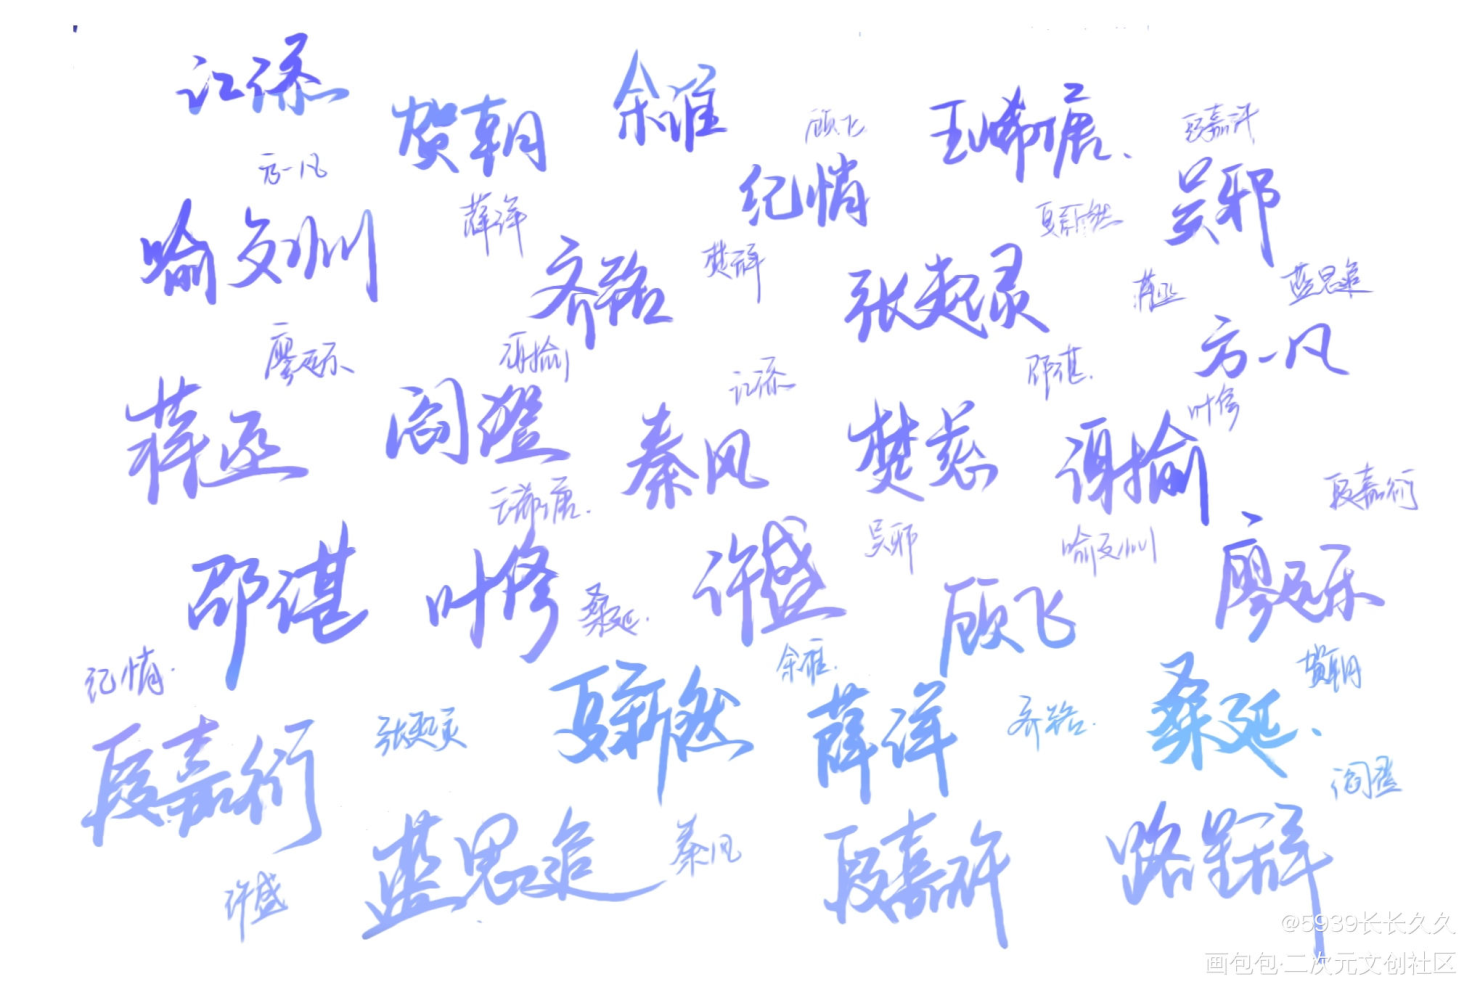 江添
贺朝
余淮
顾飞
王晞唐、
段嘉许
方一凡
喻文州
薛洋
纪悄
夏新然
吴邪
齐路
楚辞
张起灵
蒋丞
蓝思追
廖远乐
谢揄
江添
邵湛.
方一凡
叶修
蒋丞
阎澄
秦风
楚慈
谢揄
王晞唐.
段嘉衍
邵湛
叶修
桑延.
许盛
吴邪
喻文州
顾飞
廖远乐
纪悄.
余淮.
贺朝
段嘉衍
张起灵
夏新然
薛洋
齐路.
桑延.
阎澄
许盛
蓝思追
秦风
段嘉许
路星辞
@5939长长久久
画包包·二次元文创社区